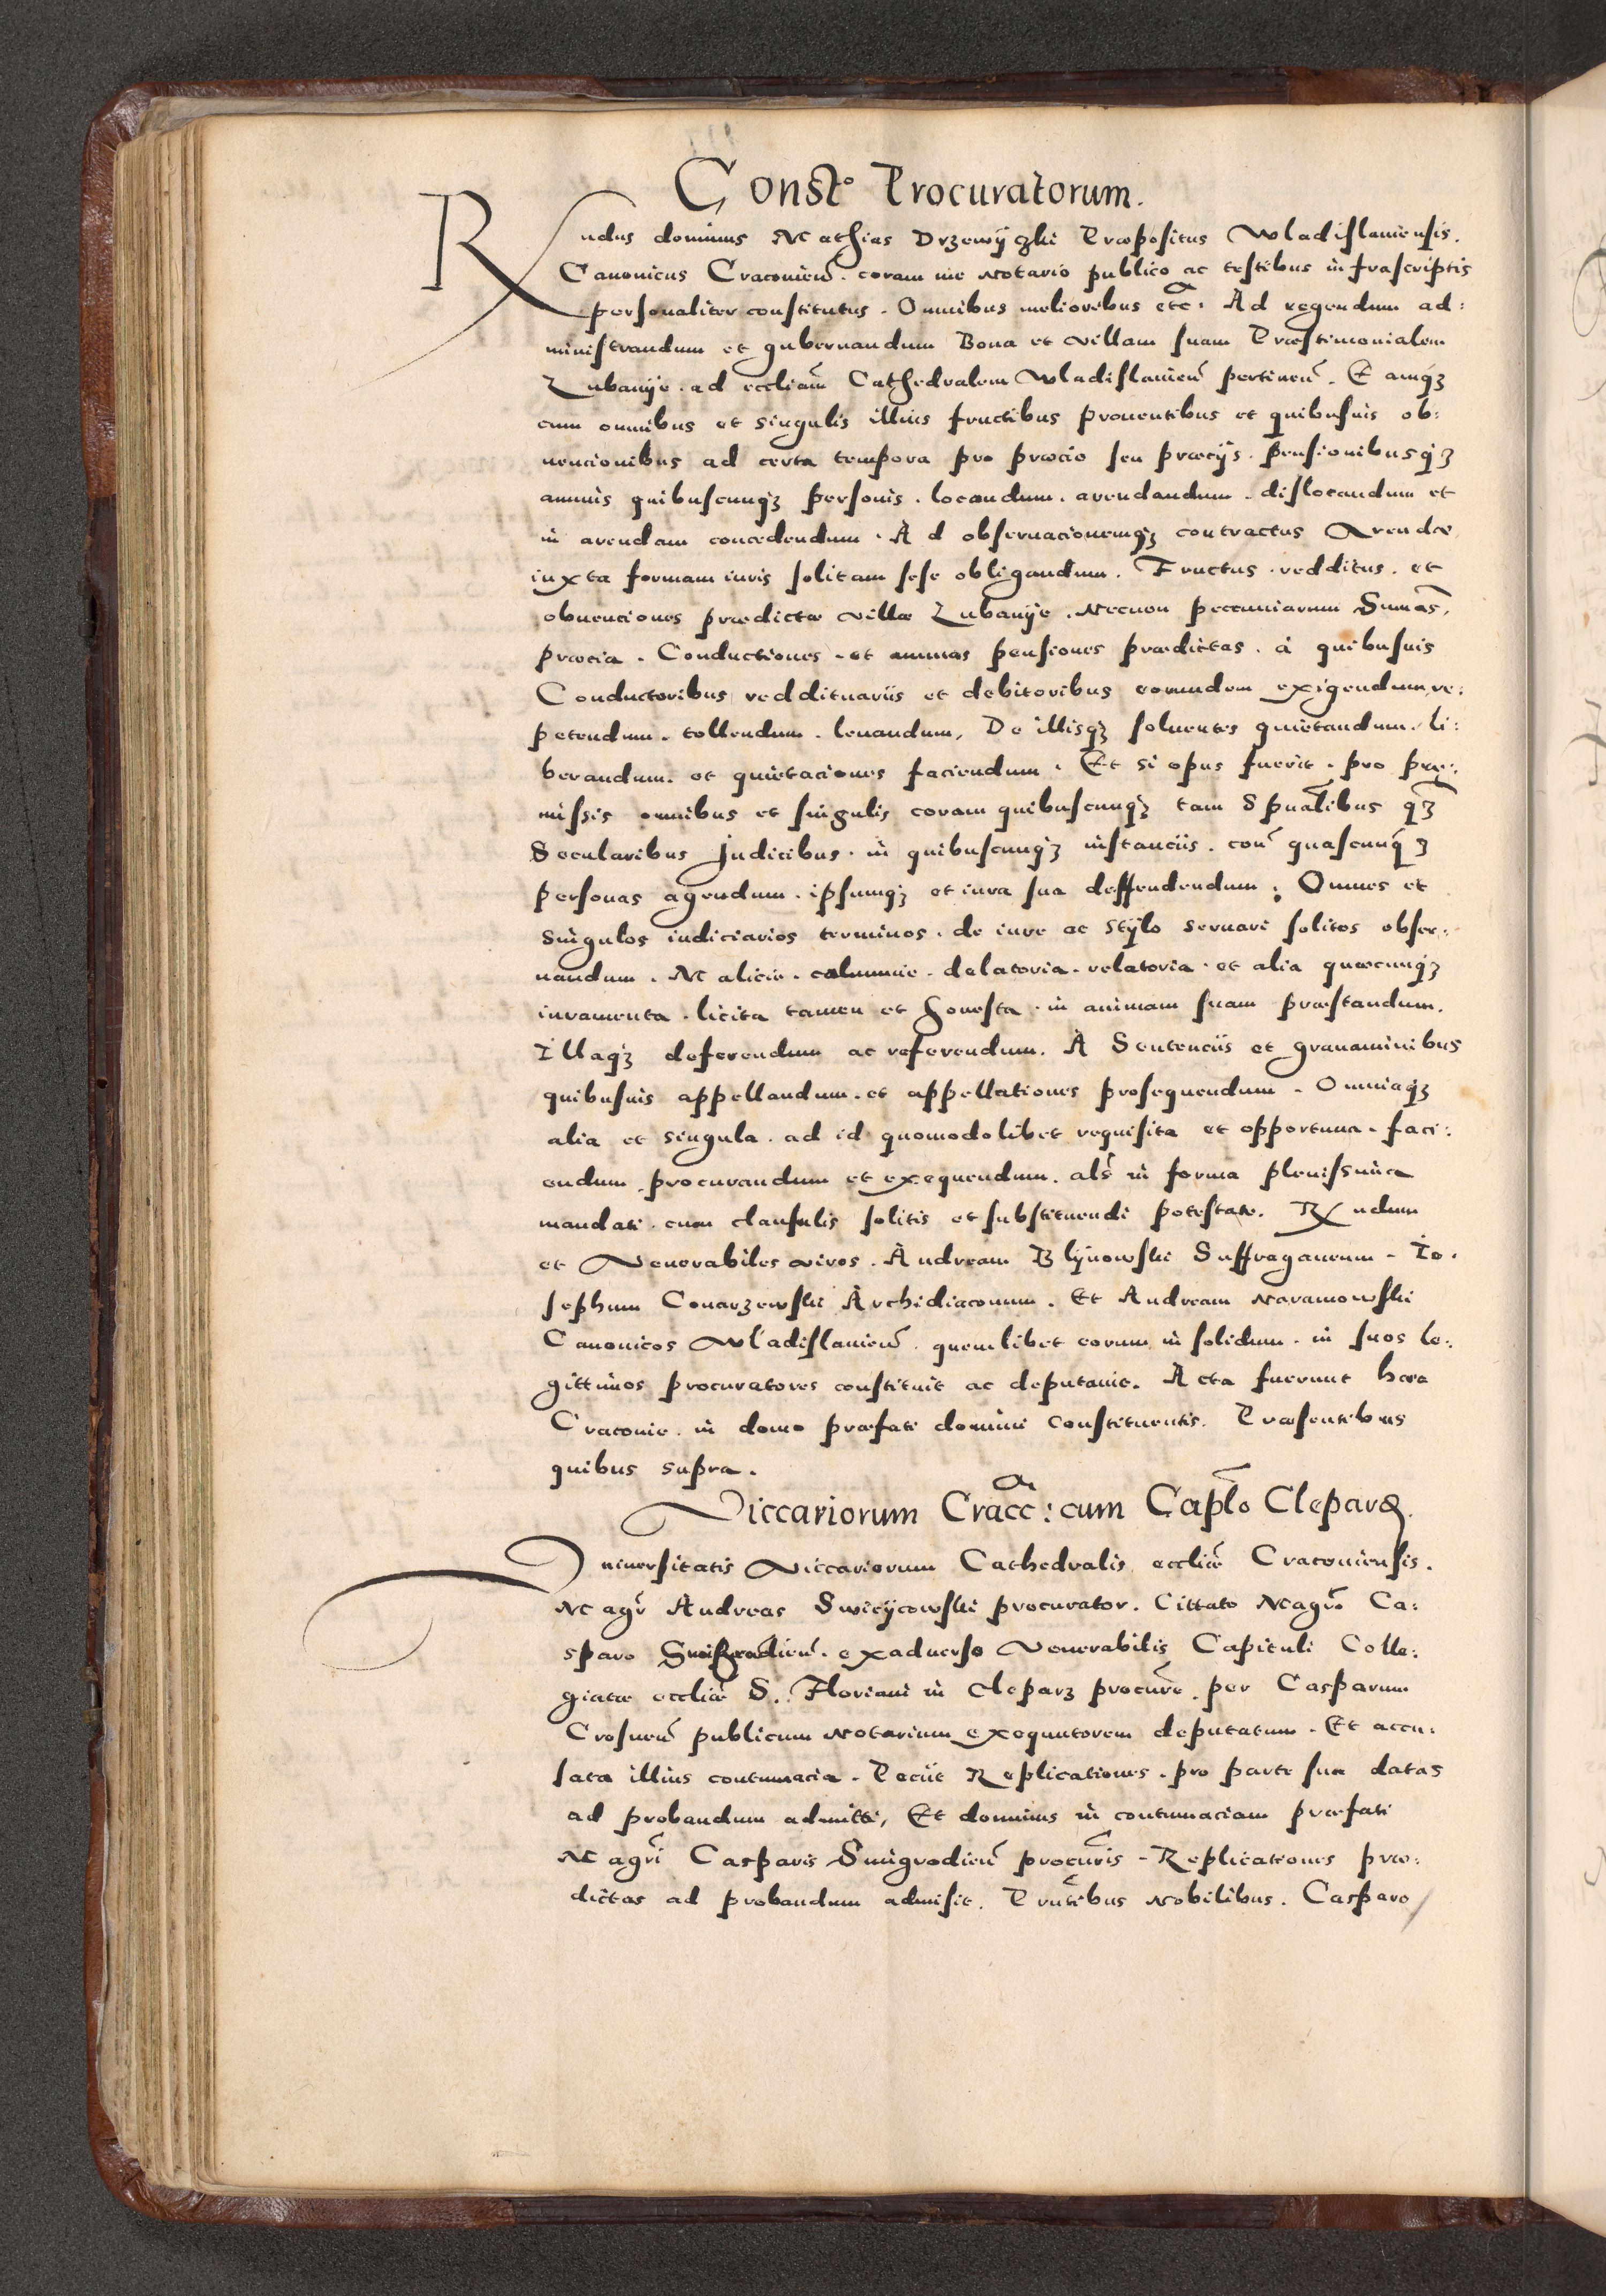 Const° Procuratorum.
Rndus dominus Mathias Drzewÿczki Præpositus Wladislauiensis.
Canonicus Cracouien̄. coram me Notario publico ac testibus infrascriptis
personaliter constitutus. Omnibus melioribus etc. Ad regendum ad:
ministrandum et gubernandum Bona et villam suam Præstimonialem
Lubanÿe. ad eccliam̄ Cathedralem Wladislauien̄ pertinen̄. Eamqꝫ
cum omnibus et singulis illius fructibus prouentibus et quibusuis ob:
uencionibus ad certa tempora pro præcio seu præcijs. pensionibusqꝫ
annuis quibuscunqꝫ personis. locandum. arendandum. dislocandum et
in arendam concedendum. Ad obseruacionemqꝫ contractus Arendæ
iuxta formam iuris solitam sese obligandum. Fructus. redditus. et
obuenciones prædictæ villæ Lubanÿe. Necnon pecuniarum Sumas̄,
præcia. Conductiones. et annuas pensiones prædictas. à quibusuis
Conductoribus reddituariis et debitoribus eorundem exigendum, re:
petendum. tollendum. leuandum, De illisqꝫ soluentes quietandum. li:
berandum. et quietaciones faciendum. Et si opus fuerit. pro præ:
missis omnibus et singulis coram quibuscunqꝫ tam Spualībus qꝫ̄
Secularibus Judicibus. in quibuscunqꝫ instanciis. con̄ quascunqꝫ
personas agendum. ipsumqꝫ et iura sua deffendendum. Omnes et
singulos iudiciarios terminos. de iure ac stÿlo seruari solitos obser:
uandum. Malicie. calumnie. delatoria. relatoria. et alia quæcunqꝫ
iuramenta. licita tamen et honesta. in animam suam præstandum.
Illaqꝫ deferendum ac referendum. A Sentenciis et grauaminibus
quibusuis appellandum. et appellationes prosequendum. Omniaqꝫ
alia et singula. ad id quomodolibet requisita et opportuna. faci:
endum. procurandum et exequendum. als̄ in forma plenissima
mandati. cum clausulis solitis et substituendi potestate. Rndum
et Venerabiles viros. Andream Blÿnowski Suffraganeum. Io:
sephum Conarzewski Archidiaconum. Et Andream Naramowski
Canonicos Wladislauien̄. quemlibet eorum in solidum. in suos le:
gittimos procuratores constituit ac deputauit. Acta fuerunt hæc
Cracouie. in domo præfati domini Constituentis. Præsentibus
quibus supra.
Viccariorum Cracc: cum Caplō Cleparꝫ.
Vniuersitatis Viccariorum Cathedralis eccliǣ Cracouiensis.
Magr̄ Andreas Swiecÿcowski procurator. Cittato Magrō Ca:
sparo Smigrodien̄. exaduerso Venerabilis Capituli Colle:
giatæ eccliǣ S. Floriani in Cleparz procure̅. per Casparum
Crosnen̄ publicum Notarium exequutorem deputatum. Et accu:
sata illius contumacia. Peciit Replicationes. pro parte sua datas
ad probandum admitti, Et dominus in contumaciam præfati
Magrī Casparis Smigrodien̄ procurīs. Replicationes præ:
dictas ad probandum admisit. Pn̄tibus Nobilibus. Casparo